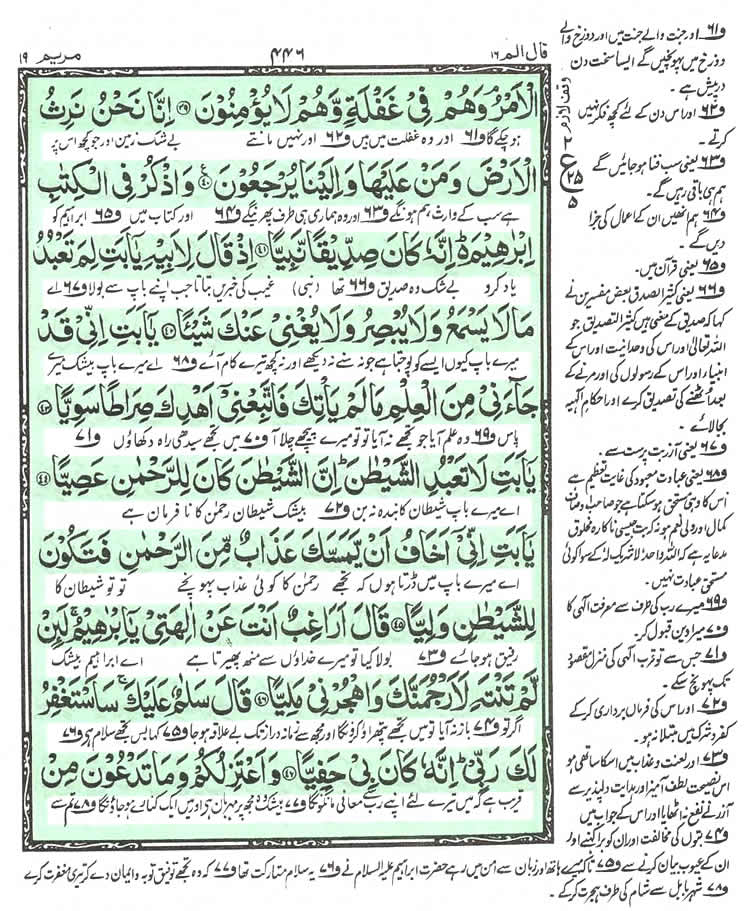 قال الم ۱۶
۴۴۶
مریم ۱۹
الْاَمْرُ وَهُمْ فِیْ غَفْلَةٍ وَّهُمْ لَا یُؤْمِنُوْنَ ۳۹ اِنَّا نَحْنُ نَرِثُ
ہوچکے گا و۶۱ اور وہ غفلت میں ہیں و۶۲ اور نہیں مانتے بے شک زمین اور جو کچھ اس پر
الْاَرْضَ وَمَنْ عَلَیْهَا وَاِلَیْنَا یُرْجَعُوْنَ ۴۰ وَاذْكُرْ فِی الْكِتٰبِ
ہے سب کے وارث ہم ہونگے و۶۳ اور وہ ہماری ہی طرف پھرینگے و۶۴ اور کتاب میں و۶۵ ابراہیم کو
اِبْرٰهِیْمَ ؕ اِنَّهٗ كَانَ صِدِّیْقًا نَّبِیًّا ۴۱ اِذْ قَالَ لِاَبِیْهِ یٰۤاَبَتِ لِمَ تَعْبُدُ
یاد کرو بے شک وہ صدیق و۶۶ تھا (نبی) غیب کی خبریں بتاتا جب اپنے باپ سے بولا و۶۷ اے
مَا لَا یَسْمَعُ وَلَا یُبْصِرُ وَلَا یُغْنِیْ عَنْكَ شَیْـًٔا ۴۲ یٰۤاَبَتِ اِنِّیْ قَدْ
میرے باپ کیوں ایسے کو پوجتا ہے جو نہ سنے نہ دیکھے اور نہ کچھ تیرے کام آئے و۶۸ اے میرے باپ بیشک میرے
جَآءَنِیْ مِنَ الْعِلْمِ مَا لَمْ یَاْتِكَ فَاتَّبِعْنِیْۤ اَهْدِكَ صِرَاطًا سَوِیًّا ۴۳
پاس و۶۹ وہ علم آیا جو تجھے نہ آیا تو تو میرے پیچھے چلا آ و۷۰ میں تجھے سیدھی راہ دکھاؤں و۷۱
یٰۤاَبَتِ لَا تَعْبُدِ الشَّیْطٰنَ ؕ اِنَّ الشَّیْطٰنَ كَانَ لِلرَّحْمٰنِ عَصِیًّا ۴۴
اے میرے باپ شیطان کا بندہ نہ بن و۷۲ بیشک شیطان رحمٰن کا نافرمان ہے
یٰۤاَبَتِ اِنِّیْۤ اَخَافُ اَنْ یَّمَسَّكَ عَذَابٌ مِّنَ الرَّحْمٰنِ فَتَكُوْنَ
اے میرے باپ میں ڈرتا ہوں کہ تجھے رحمٰن کا کوئی عذاب پہونچے تو تو شیطان کا
لِلشَّیْطٰنِ وَلِیًّا ۴۵ قَالَ اَرَاغِبٌ اَنْتَ عَنْ اٰلِهَتِیْ یٰۤاِبْرٰهِیْمُ ۚ لَىِٕنْ
رفیق ہو جائے و۷۳ بولا کیا تو میرے خداؤں سے منھ پھیرتا ہے اے ابراہیم بیشک
لَّمْ تَنْتَهِ لَاَرْجُمَنَّكَ وَاهْجُرْنِیْ مَلِیًّا ۴۶ قَالَ سَلٰمٌ عَلَیْكَ ۚ سَاَسْتَغْفِرُ
اگر تو و۷۴ باز نہ آیا تو میں تجھے پتھراؤ کرونگا اور مجھ سے زمانہ دراز تک بے علاقہ ہو جا و۷۵ کہا بس تجھے سلام ہے و۷۶
لَكَ رَبِّیْ ؕ اِنَّهٗ كَانَ بِیْ حَفِیًّا ۴۷ وَاَعْتَزِلُكُمْ وَمَا تَدْعُوْنَ مِنْ
قریب ہے کہ میں تیرے لئے اپنے رب سے معافی مانگونگا و۷۷ بیشک وہ مجھ پر مہربان ہے اور میں ایک کنارے ہو جاؤنگا و۷۸ تم سے
و۶۱ اور جنت والے جنت میں اور دوزخ والے
دوزخ میں پہونچیں گے ایسا سخت دن
درپیش ہے۔
و۶۲ اور اس دن کے لئے کچھ فکر نہیں
کرتے۔
و۶۳ یعنی سب فنا ہو جائیں گے
ہم ہی باقی رہیں گے۔
و۶۴ ہم انھیں ان کے اعمال کی جزا
دیں گے۔
و۶۵ یعنی قرآن میں۔
و۶۶ یعنی کثیر الصدق بعض مفسرین نے
کہا کہ صدیق کے معنی ہیں کثیر التصدیق جو
اللہ تعالیٰ اور اس کی وحدانیت اور اس کے
انبیاء اور اس کے رسولوں کی اور مرنے کے
بعد اُٹھنے کی تصدیق کرے اور احکام الٰہیہ
بجالائے۔
و۶۷ یعنی آزر بت پرست سے۔
و۶۸ یعنی عبادت معبود کی غایت تعظیم ہے
اس کا وہی مستحق ہو سکتا ہے جو صاحب اوصاف
کمال اور ولی نعم ہو نہ کہ بت جیسی ناکارہ مخلوق
مدعا یہ ہے کہ اللہ واحد لاشریک لہٗ کے سوا کوئی
مستحق عبادت نہیں۔
و۶۹ میرے رب کی طرف سے معرفت الٰہی کا
و۷۰ میرا دین قبول کر۔
و۷۱ جس سے تو قرب الٰہی کی منزل مقصود
تک پہونچ سکے۔
و۷۲ اور اس کی فرماں برداری کرکے
کفر و شرک میں مبتلا نہ ہو۔
و۷۳ اور لعنت و عذاب میں اسکا ساتھی ہو
اس نصیحت لطف آمیز اور ہدایت دلپذیر سے
آزر نے نفع نہ اٹھایا اور اس کے جواب میں
و۷۴ بتوں کی مخالفت اور ان کو برا کہنے اور
ان کے عیوب بیان کرنے سے و۷۵ تاکہ میرے ہاتھ اور زبان سے امن میں رہے حضرت ابراہیم علیہ السلام نے و۷۶ یہ سلام متارکت تھا و۷۷ کہ وہ تجھے توفیق توبہ و ایمان دے کر تیری مغفرت کرے
و۷۸ شہر بابل سے شام کی طرف ہجرت کرکے۔